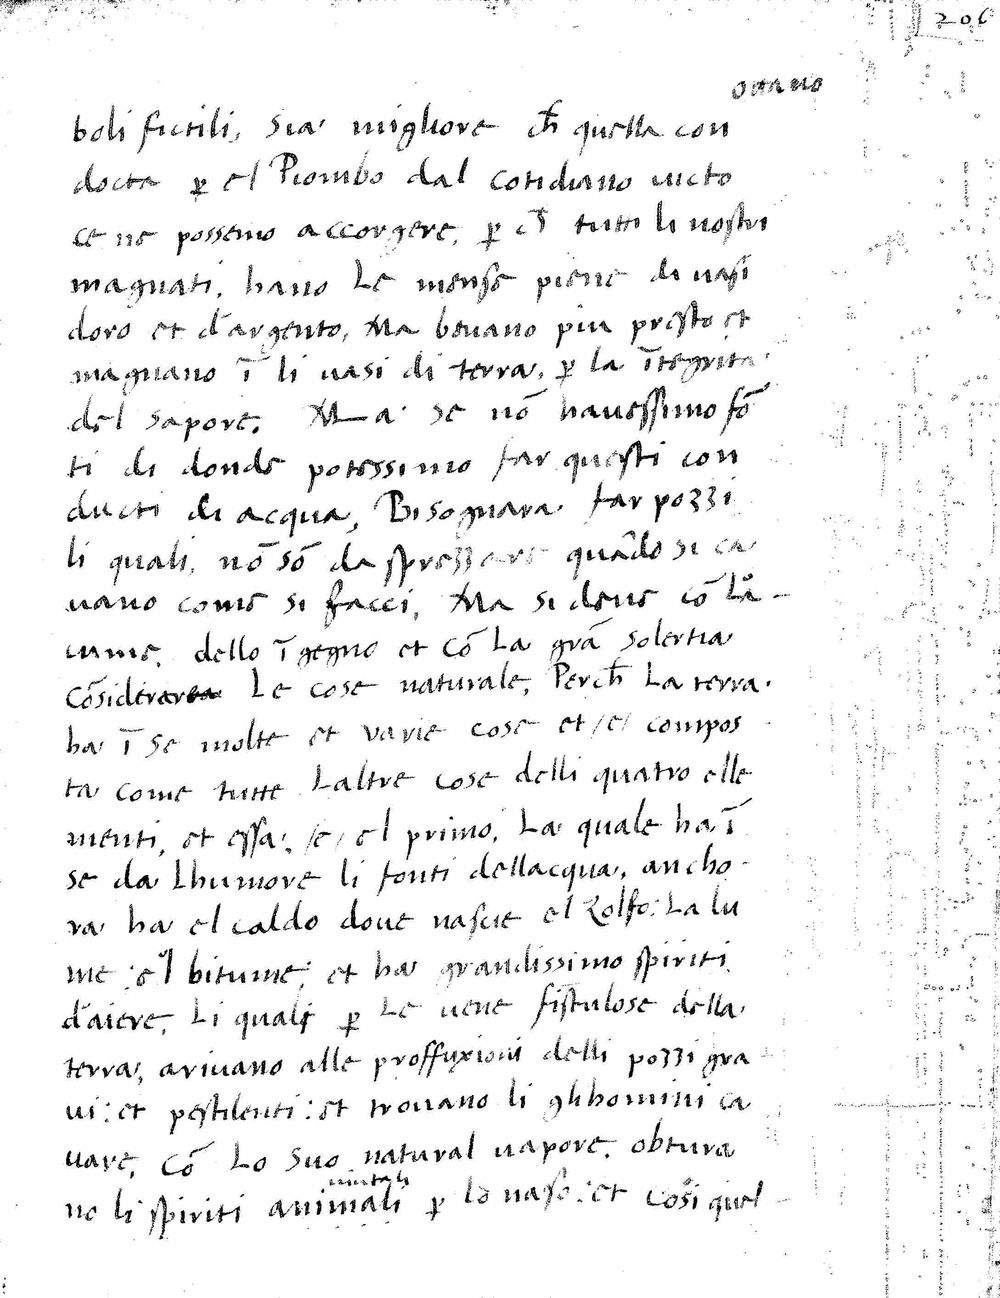 206
ottano
boli fictili, sia migliore ch̄ quella con
docta ꝑ el Piombo dal cotidiano victo
ce ne possemo accorgere, ꝑ ch̄ tutti li nostri
magnati, hano Le mense piene di uasi
doro et d'argento, Ma beuano piu presto et
magnano ī li uasi di terra, ꝑ la ītegrita
del sapore. Ma se nō hauessimo fō
ti di donde potessimo far questi con
ducti di acqua, Bisognara far pozzi
li quali, nō sō da sprezzare quādo si ca
uano come si facci, Ma si deue cō La
cume, dello īgegno et Cō La grā solertia
Cōsiderare Le cose naturale, Perch̄ La terra
ha ī se molte et varie cose et /e/ compos
ta come tutte Laltre cose delli quatro elle
menti, et essa, /e/ el primo, La quale ha ī
se da Lhumore li fonti dellacqua, ancho
ra ha el caldo doue nascie el Zolfo: La lu
me: el bitume; et ha grandissimo spiriti
d'aiere, Li quali ꝑ Le uene fistulose della
terra, ariuano alle proffuxioni delli pozzi gra
ui: et pestilenti: et trouano li ghhomini ca
uare, Cō Lo suo natural uapore, obtura
uitali
no li spiriti animali ꝑ lo naso: et Cosi quel